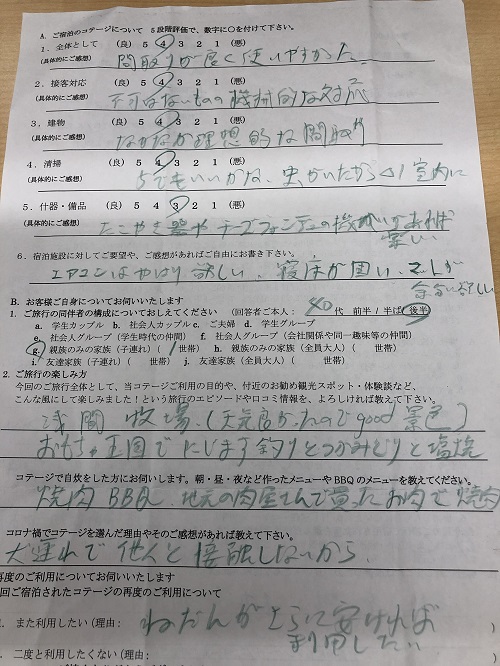 A. ご宿泊のコテージについて 5段階評価で、数字に○を付けて下さい。
1. 全体として (良) 5 4 3 2 1 (悪)
(具体的にご感想) 間取りが良く使いやすかった
2. 接客対応 (良) 5 4 3 2 1 (悪)
(具体的にご感想) 不可はないものの機械的な対応
3. 建物 (良) 5 4 3 2 1 (悪)
(具体的にご感想) なかなか理想的な間取り
4. 清掃 (良) 5 4 3 2 1 (悪)
(具体的にご感想) 5でもいいかな、虫がいたから△1 室内に
5. 什器・備品 (良) 5 4 3 2 1 (悪)
(具体的にご感想) たこやき器やチーズフォンデュの機械があれば
楽しい
6. 宿泊施設に対してご要望や、ご感想があればご自由にお書き下さい。
エアコンはやはり欲しい、寝床が固い、
欲しい
B. お客様ご自身についてお伺いいたします
1. ご旅行の同伴者の構成についておしえてください (回答者ご本人: 40代 前半 / 半ば 後半)
a. 学生カップル b. 社会人カップル c. ご夫婦 d. 学生グループ
e. 社会人グループ (学生時代の仲間) f. 社会人グループ (会社関係や同一趣味等の仲間)
g. 親族のみの家族 (子連れ) ( 1世帯) h. 親族のみの家族 (全員大人) ( 世帯)
i. 友達家族 (子連れ) ( 世帯) j. 友達家族 (全員大人) ( 世帯)
2. ご旅行の楽しみ方
今回のご旅行全体として、当コテージご利用の目的や、付近のお勧め観光スポット・体験談など、
こんな風にして楽しみました!という旅行のエピソードや口コミ情報を、よろしければ教えて下さい。
浅間牧場、(天気良かったのでgood 景色)
おもちゃ王国でにじます釣りとつかみどりと塩焼
コテージで自炊をした方にお伺いします。朝・昼・夜など作ったメニューやBBQのメニューを教えてください。
焼肉BBQ、地元の肉屋さんで買ったお肉で焼肉
コロナ禍でコテージを選んだ理由やそのご感想があれば教えて下さい。
犬連れで他人と接触しないから。
再度のご利用についてお伺いいたします
回ご宿泊されたコテージの再度のご利用について
. また利用したい (理由: ねだんがさらに安ければ
利用したい )
. 二度と利用したくない (理由: )